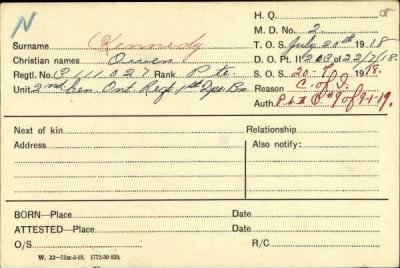 N
H. Q. OR
M. D. No. 2
Surname Kennedy
T. O. S. July 20th 1918
Christian names Owen
D. O. Pt. II 203 of 22/7/18.
Regtl. No. 3111027 Rank Pte.
S. O. S. 20-9 1918.
Unit 2nd Cen. Ont. Regt. 1st Dps. Bn.
Reason C. of I.
Auth. Pt II O #9 of 9-1-19.
Next of kin
Relationship
Address
Also notify:
BORN—Place
Date
ATTESTED—Place
Date
O/S
R/C
W. 22—75m-5-18. 1772-39 829.